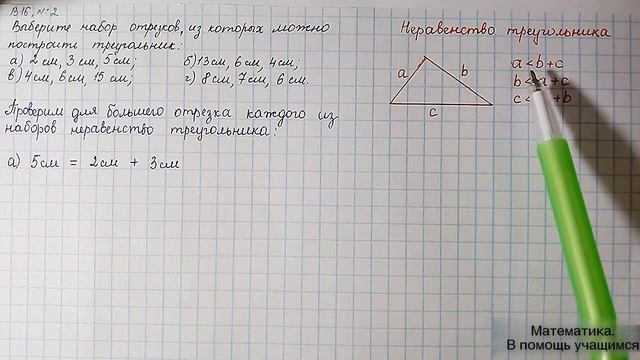 В16, №2
Выберите набор отрезков, из которых можно
построить треугольник:
а) 2 см, 3 см, 5 см; б) 13 см, 6 см, 4 см;
в) 4 см, 6 см, 15 см; г) 8 см, 7 см, 6 см.
Проверим для большего отрезка каждого из
наборов неравенство треугольника:
а) 5 см = 2 см + 3 см
Неравенство треугольника
a b c
a < b + c
b < + c
c < + b
Математика.
В помощь учащимся